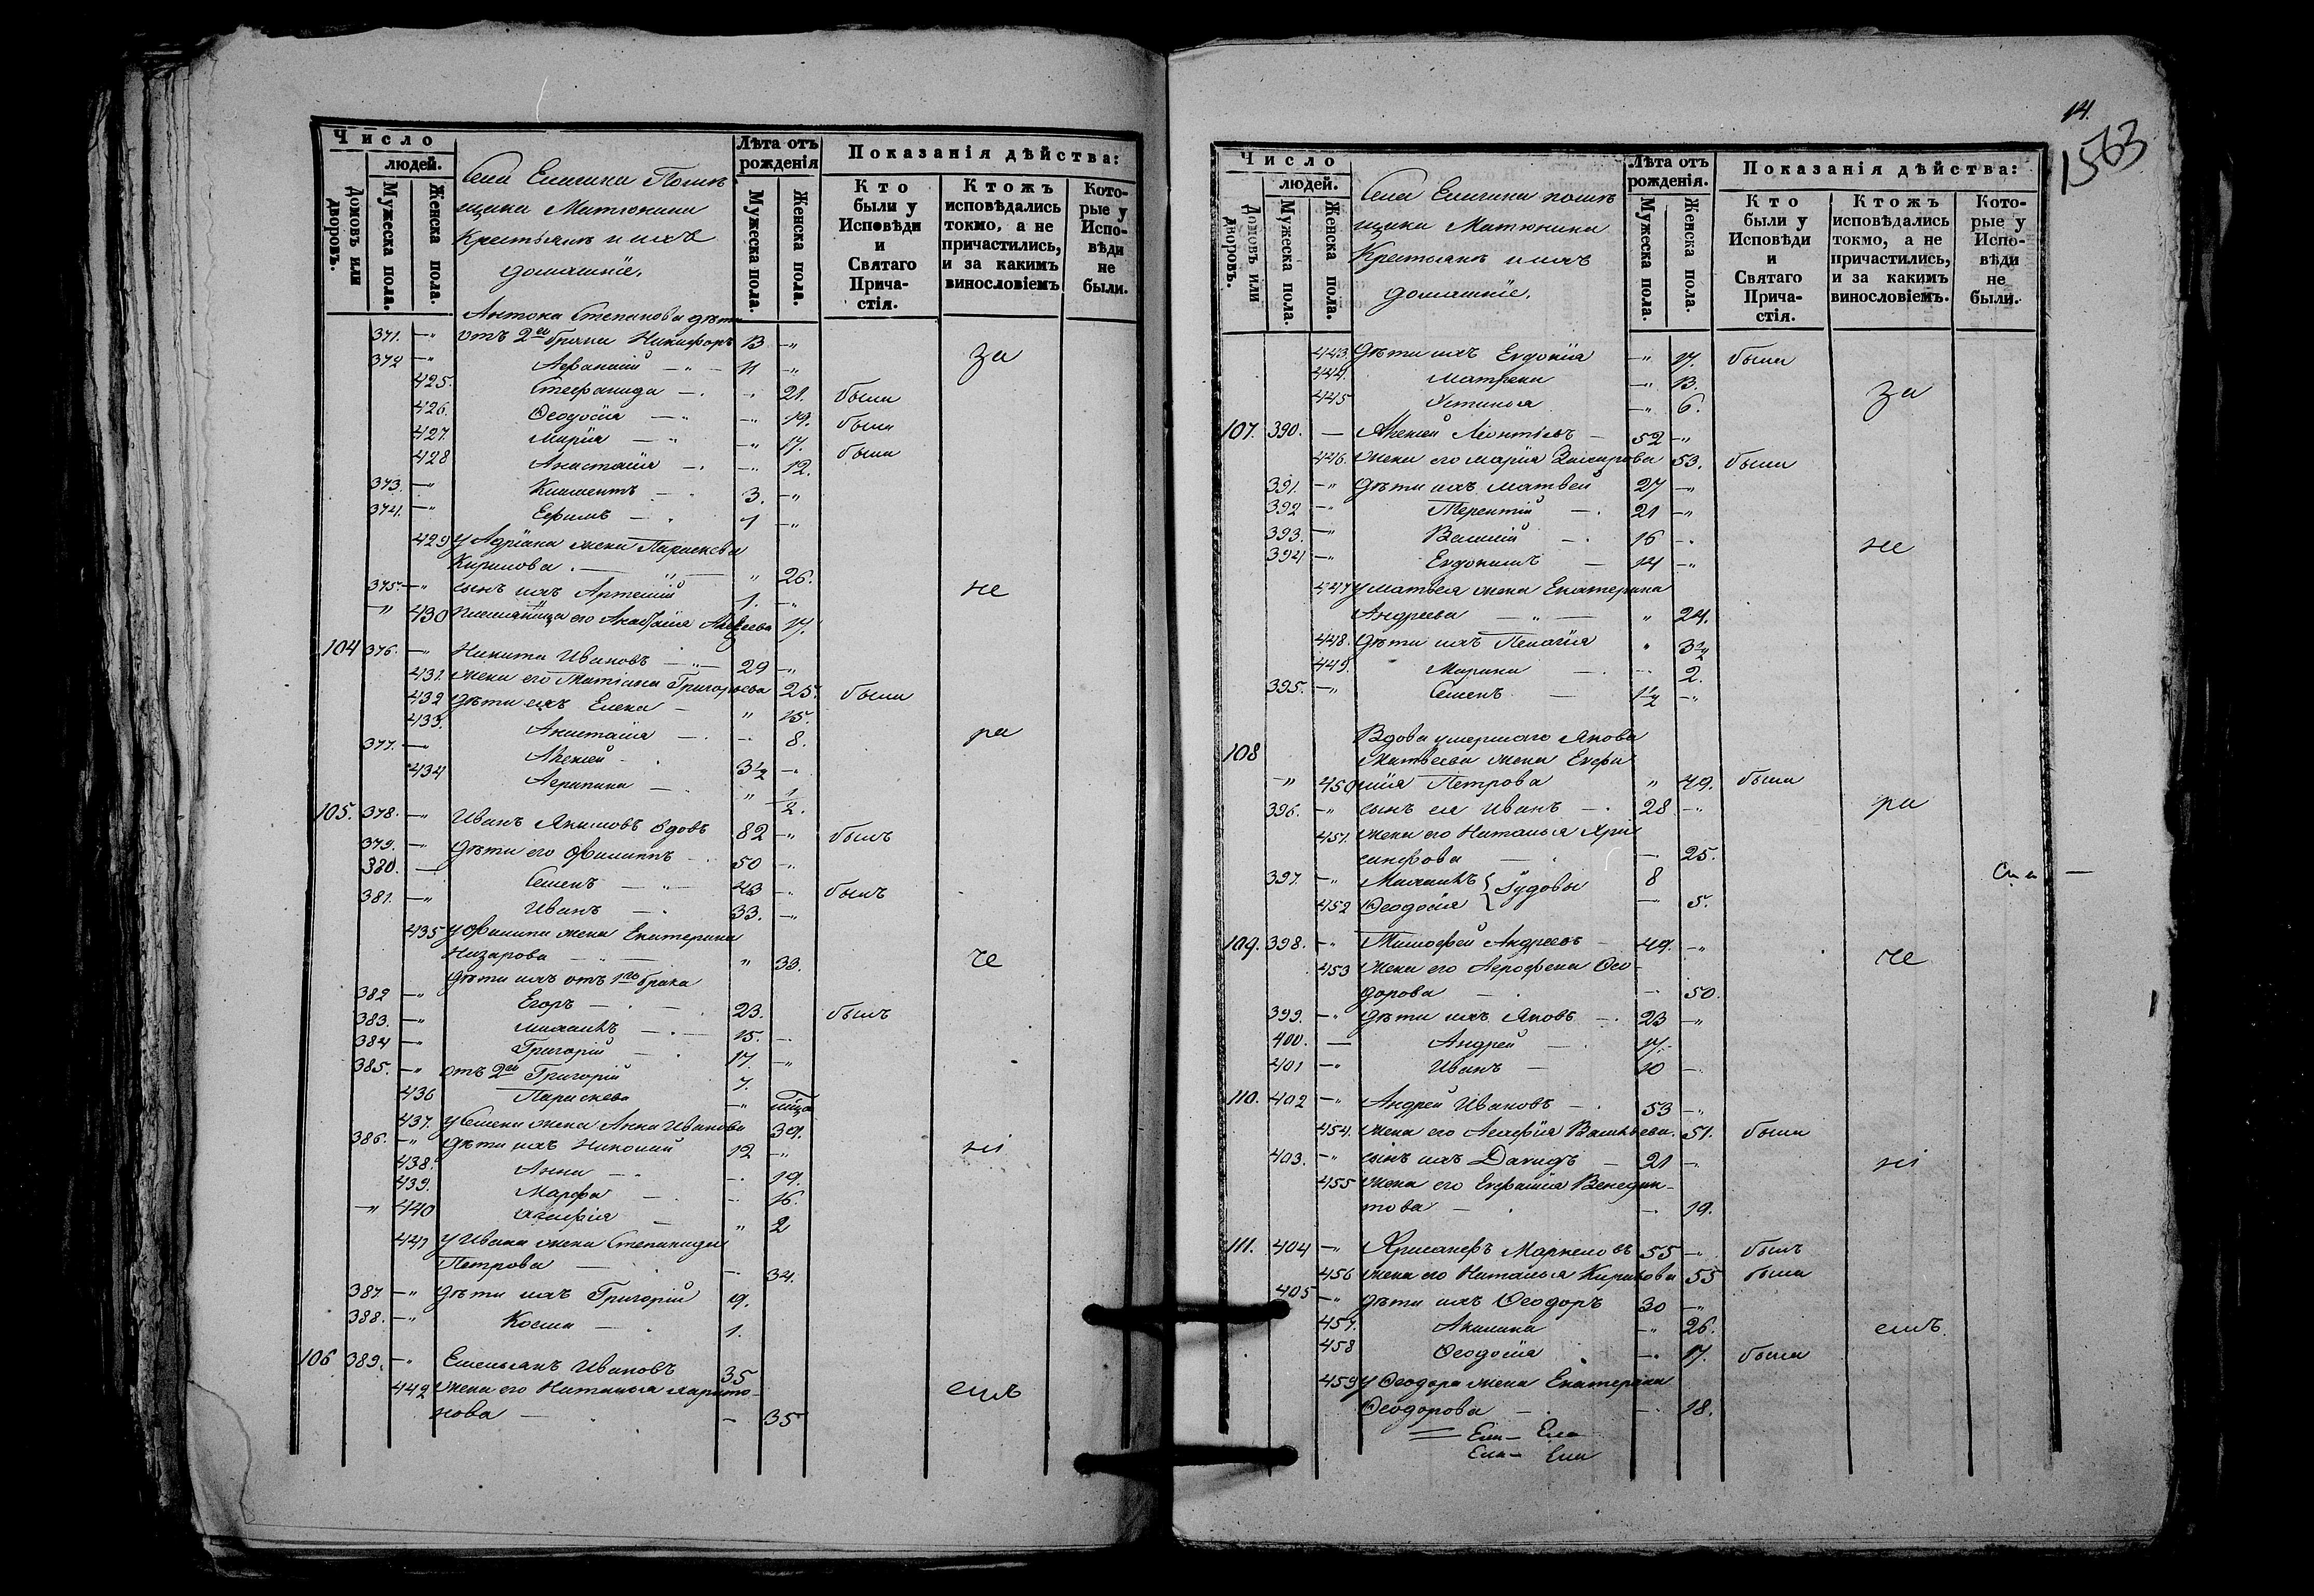 Число
людей.
Домовъ или дворовъ.
Мужеска пола.
Женска пола.
Села Помѣ
щика Матюнина
Крестьянъ и ихъ
домашніе.
Лѣта отъ рожденія
Мужеска пола.
Женска пола.
Показанія дѣйства:
Кто были у Исповѣди и Святаго Прича-стія.
Ктожъ исповѣдались токмо, а не причастились, и за какимъ винословіемъ
Кото-рые у Испо-вѣди не были.
Антона Степанова дѣти
371. —" отъ 2го брака Никифоръ 13 —"
за
372 —" Афанасій — " — 11 —"
425. Стефанида — . " 21. была
426. Ѳеодосія — " —" 19. была
427. Марія — " —" 17. была
428 Анастасія — . —" 12.
373. —" Климентъ — " 3. —"
374. —" Ефимъ — . " 1 —"
429 у Адріана жена Параскева
Кирилова . — " — " 26.
375. —" сынъ ихъ Артемій 1. —"
не
—" 430 племянница его Анастасія 17.
104 376. —" Никита Ивановъ — "— 29 —"
431. жена его Татіана Григорьева 25. была
432 дѣти ихъ Елена — " 15.
433. Анастасія — . —" 8.
ра
377. —" Алексей — . 3½ —"
434 Агрипина — . " ½.
105. 378. —" Иванъ Якимовъ вдовъ 82 —" былъ
379. —" дѣти его Филиппъ — . 50 —"
380. — Семенъ — " — 43 —" былъ
381. —" Иванъ — . 33. —"
435 у Филипа жена Екатерина
Назарова — " — " 33.
че
дѣти ихъ отъ 1го брака
382 —" Егоръ — . — 23. былъ
383. —" Михаилъ — . — 15. —
384 —" Григорій — . 17. —"
385. —" отъ 2го Григорій 7.
436 Параскева —"
437. у Семена жена Анна Иванова 39.
386. —" дѣти ихъ Николай 12 —"
ні
438. Анна — . —. 19.
439. Марфа — . —. 16.
—" 440 Агафія — " 2
441 у Ивана жена Степанида
Петрова — . —. 34.
387. —" дѣти ихъ Григорій 9.
388. —" Косма — . 1.
106 389. —" Емельянъ Ивановъ 35
442 жена его Наталья Харито-
емъ
нова — . — 35
14.
1563
Число
людей.
Домовъ или дворовъ.
Мужеска пола.
Женска пола.
Села помѣ
щика Матюнина
Крестьянъ и ихъ
домашніе.
Лѣта отъ рожденія.
Мужеска пола.
Женска пола.
Показанія дѣйства:
Кто были у Исповѣди и Святаго Прича-стія.
Ктожъ исповѣдались токмо, а не причастились, и за какимъ винословіемъ.
Кото-рые у Испо-вѣди не были.
443. дѣти ихъ Евдокія —" 17. была
444. Матрена —" 13.
за
445 Устинья —" 6.
107. 390. — Алексей Леонтьевъ — 52 —"
446. жена его Марія 53. была
391. —" дѣти ихъ Матвей 27 —"
392 —" Терентій — . 21 —"
393. —" Василій — . 16 —.
не
394 —" Евдокимъ — 14 —"
447 у Матвея жена Екатерина
Андреева — " — " 24.
448. дѣти ихъ Пелагія " 3½
449. Марина — . —. 2.
395. —" Семенъ — 1½ —"
Вдова умершаго Якова
108 Матвеева жена Евфи
—" 450 мія Петрова " 49. была
396. —" сынъ ея Иванъ — . 28 —"
ра
451. жена его Наталья Хри
санфова — . —. 25.
397. —" Михаилъ 8
452 Ѳеодосія —" 5.
109. 398. —" Тимофей Андреевъ — 49. —"
че
453 жена его Агрофена Ѳео-
дорова — . —. 50.
399. —" дѣти ихъ Яковъ — . 23 —"
400. — Андрей — . 17.
401 —" Иванъ — 10 —.
110. 402 —" Андрей Ивановъ — . 53 —"
454. жена его Агафія Васильева. 51. была
403. —" сынъ ихъ Давидъ — 21 —.
ні
455 жена его Евфимія Венедик-
това — . —. 19.
111. 404 —" Хрисанфъ Маркеловъ 55 —" былъ
456 жена его Наталья Кирилова 55 была
405 —" дѣти ихъ Ѳеодоръ 30 —"
457. Акилина —" 26.
емъ.
458 Ѳеодосія . —. 17. была
459 у Ѳеодора жена Екатерина
Ѳеодорова — . —. 18.